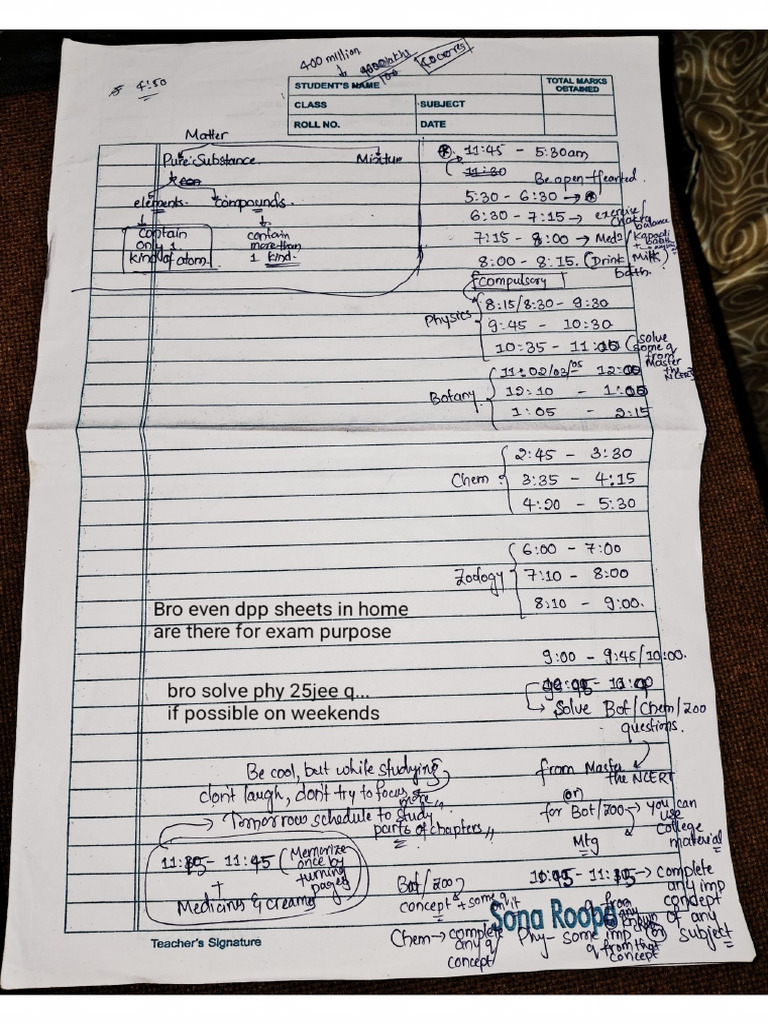 400 million
40 crores
4:50
STUDENT'S NAME
TOTAL MARKS
OBTAINED
CLASS
SUBJECT
ROLL NO.
DATE
Matter
Pure Substance
Mixture
elements
compounds
contain
only 1
kind of atom
contain
more than
1 kind
11:45 - 5:30am
11:30
Be open-Hearted.
5:30 - 6:30 →
6:30 - 7:15 → exercise/
chakra
balance
7:15 - 8:00 → Meds/
8:00 - 8:15. (Drink Milk)
bath.
compulsory
Physics
8:15/8:30 - 9:30
9:45 - 10:30
10:35 - 11:00
(solve
some q
from
Master
the NCERT)
Botany
11:02/03/05 - 12:00
12:10 - 1:00
1:05 - 2:15
Chem
2:45 - 3:30
3:35 - 4:15
4:20 - 5:30
Zoology
6:00 - 7:00
7:10 - 8:00
8:10 - 9:00.
Bro even dpp sheets in home
are there for exam purpose
9:00 - 9:45/10:00.
bro solve phy 25jee q...
if possible on weekends
→ Solve Bot/Chem/zoo
questions.
from Master
the NCERT
(or)
for Bot/zoo → you can
use
college
material
Mtg
Be cool, but while studying
don't laugh, don't try to focus
more,,
→ Tomorrow schedule to study
parts of chapters,,
- 11:45 (Memorize
once by
turning
pages)
+
Medicins & creams
→ complete
any imp
concept
of any
subject
Bot/zoo
concept + some q
on it
Chem → complete
any q/
concept
Phy - some imp
q from that
concept
Sona Roopa
Teacher's Signature